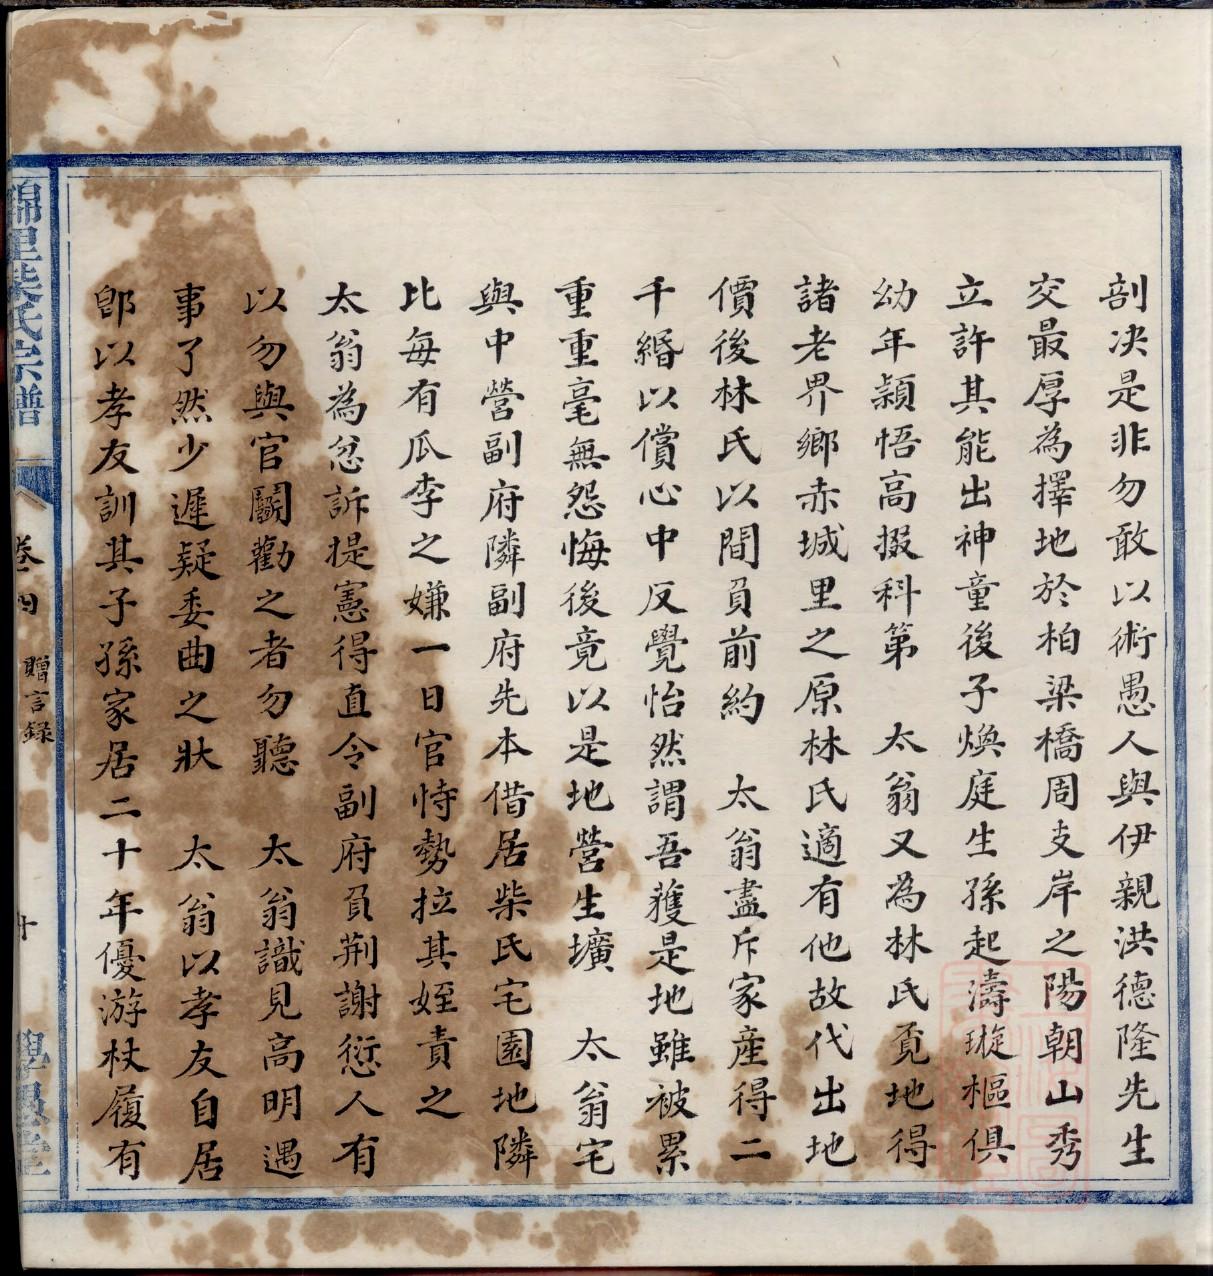 剖决是非勿敢以術愚人與伊親洪德隆先生
交最厚為擇地於柏梁橋周支岸之陽朝山秀
立許其能出神童後子煥庭生孫起濤璇樞俱
幼年穎悟高掇科第　太翁又為林氏覓地得
諸老界鄉赤城里之原林氏適有他故代出地
價後林氏以間負前約　太翁盡斥家產得二
千緡以償心中反覺怡然謂吾獲是地雖被累
重重毫無怨悔後竟以是地營生壙　太翁宅
與中營副府隣副府先本借居柴氏宅園地隣
比每有瓜李之嫌一日官恃勢拉其姪責之
太翁為忿訴提憲得直令副府負荆謝愆人有
以勿與官鬭勸之者勿聽　太翁識見高明遇
事了然少遲疑委曲之狀　太翁以孝友自居
卽以孝友訓其子孫家居二十年優游杖履有
錦里柴氏宗譜
卷四　贈言錄
十